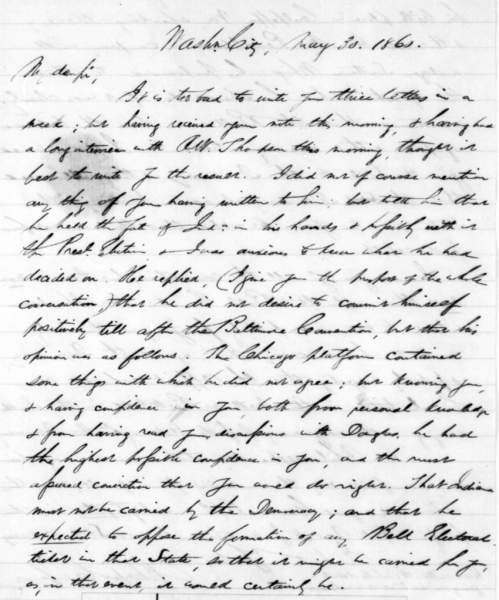 Washn City, May 30. 1860.
My dear sir,
It is too bad to write you three letters in a
week; but having received your note this morning, & having had
a long interview with R.W. Thompson this morning, thought it
best to write you the result. I did not of course mention
any thing of your having written to him: but told him that
he held the fate of Ind: in his hands & possibly with it
the Presl. Election & I was anxious to know what he had
decided on. He replied, (I give you the purport of the whole
conversation) that he did not desire to commit himself
positively till after the Baltimore Convention, but that his
opinion was as follows. The Chicago platform contained
some things with which he did not agree; but knowing you,
& having confidence in you both from personal knowledge
& from having read your discussions with Douglas, he had
the highest possible confidence in you, and the most
assured conviction that you would do right. That Indiana
must not be carried by the Democracy; and that he
expected to oppose the formation of any Bell Electoral
ticket in that State, so that it might be carried for you,
as, in that event, it would certainly be.